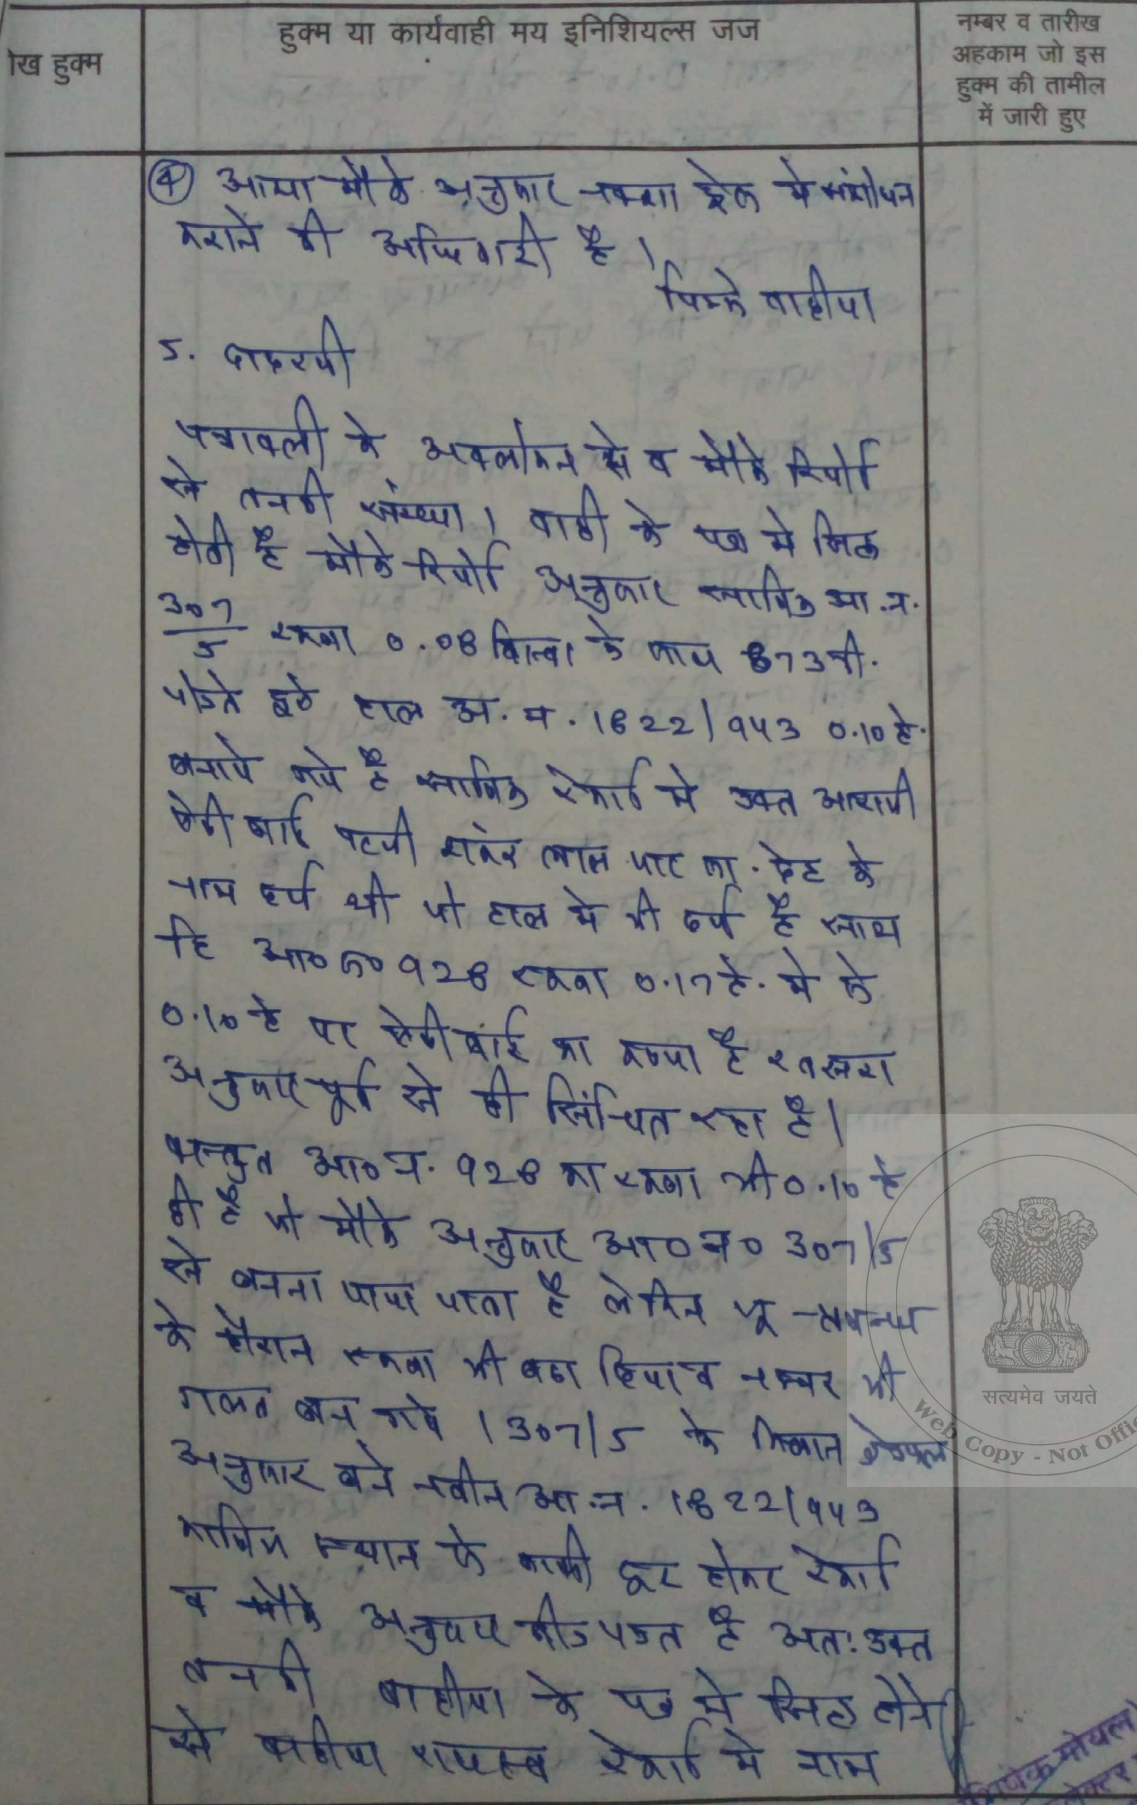 हुक्म या कार्यवाही मय इनिशियल्स जज
नम्बर व तारीख
अहकाम जो इस
हुक्म की तामील
में जारी हुए
रेख हुक्म
④ आया मौके अनुसार नक्शा ट्रेस मे संशोधन
कराने की अधिकारी है।
जिम्मे वादीया
5. दादरसी
पत्रावली के अवलोकन से व मौके रिपोर्ट
से तनकी संख्या 1 वादी के पक्ष मे सिद्ध
होती है मौके रिपोर्ट अनुसार साबिक आ.न.
307/5 रकबा 0.08 बिस्वा के साथ 873 मी.
जोडते हुये हाल आ.न. 1822/943 0.10 है.
बनाये गये है साबिक रेकार्ड मे उक्त आराजी
बाई पत्नी शंकर लाल जाट सा. देह के
नाम दर्ज थी जो हाल मे भी दर्ज है साथ
हि आ०न० 928 रकबा 0.17 है. मे से
0.10 है पर बाई का कब्जा है व खसरा
अनुसार पूर्व से ही सिंचित रहा है।
वस्तुत आ० न. 928 का रकबा भी 0.10 है
ही है जो मौके अनुसार आ० न० 307/5
से बनना पाया जाता है लेकिन भू-प्रबन्ध
के दौरान रकबा भी बढा दिया व नम्बर भी
गलत बन गये। 307/5 के मिलान क्षेत्रफल
अनुसार बने नवीन आ.न. 1822/943
साबिक स्थान से काफी दूर होकर रेकार्ड
व मौके अनुसार पडत है अतः उक्त
तनकी वादीया के पक्ष मे सिद्ध होने
से वादीया राजस्व रेकार्ड मे नाम
सत्यमेव जयते
Web Copy - Not Offic